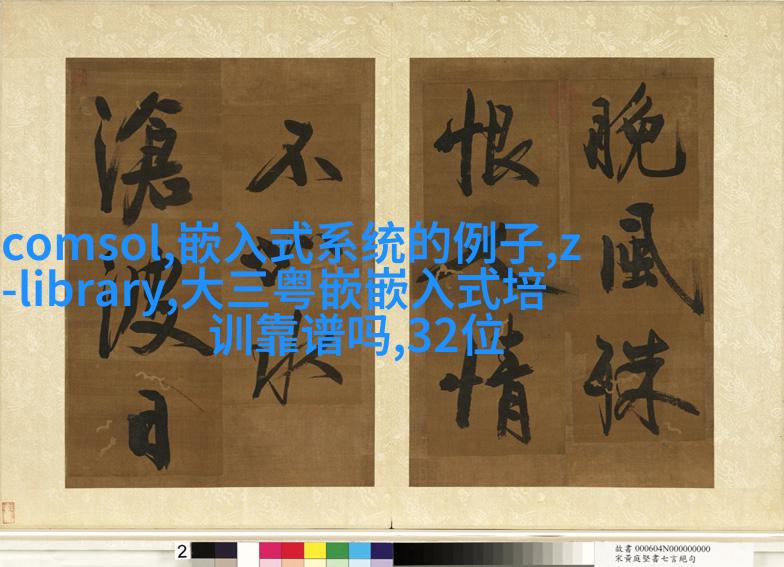 comsol,嵌入式系统的例子,z
-library,大三粤嵌嵌入式培
训靠谱吗,32位
晚風殊
恨情
不水
滄波日
2
故書 000604N000000000
宋黃庭堅書七言絕句